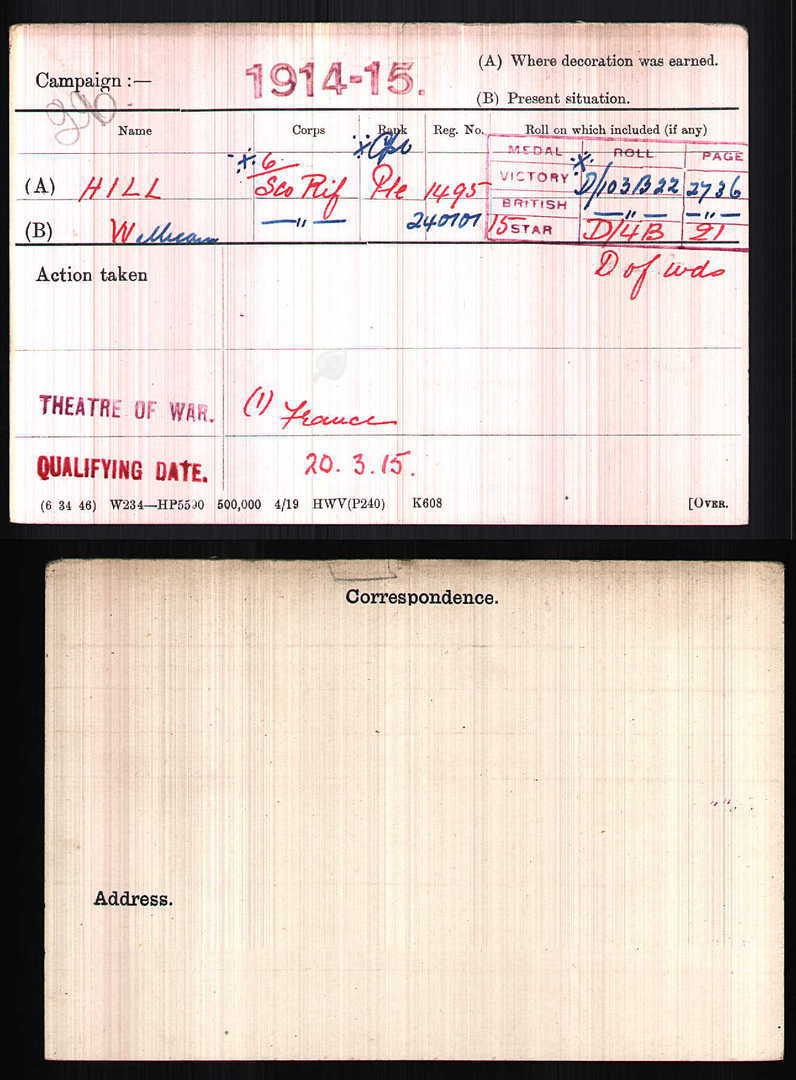 Campaign :— 1914-15. (A) Where decoration was earned.
(B) Present situation.
Name Corps Rank Reg. No. Roll on which included (if any)
MEDAL ROLL PAGE
(A) HILL 6/Sco Rif Pte 1495 VICTORY D/103B22 2736
Cpl
BRITISH —"— —"—
(B) William —"— 240701 15 STAR D/4B 21
Action taken D of wds
THEATRE OF WAR. (1) France
QUALIFYING DATE. 20.3.15.
(6 34 46) W234—HP5590 500,000 4/19 HWV(P240) K608 [OVER.
Correspondence.
Address.